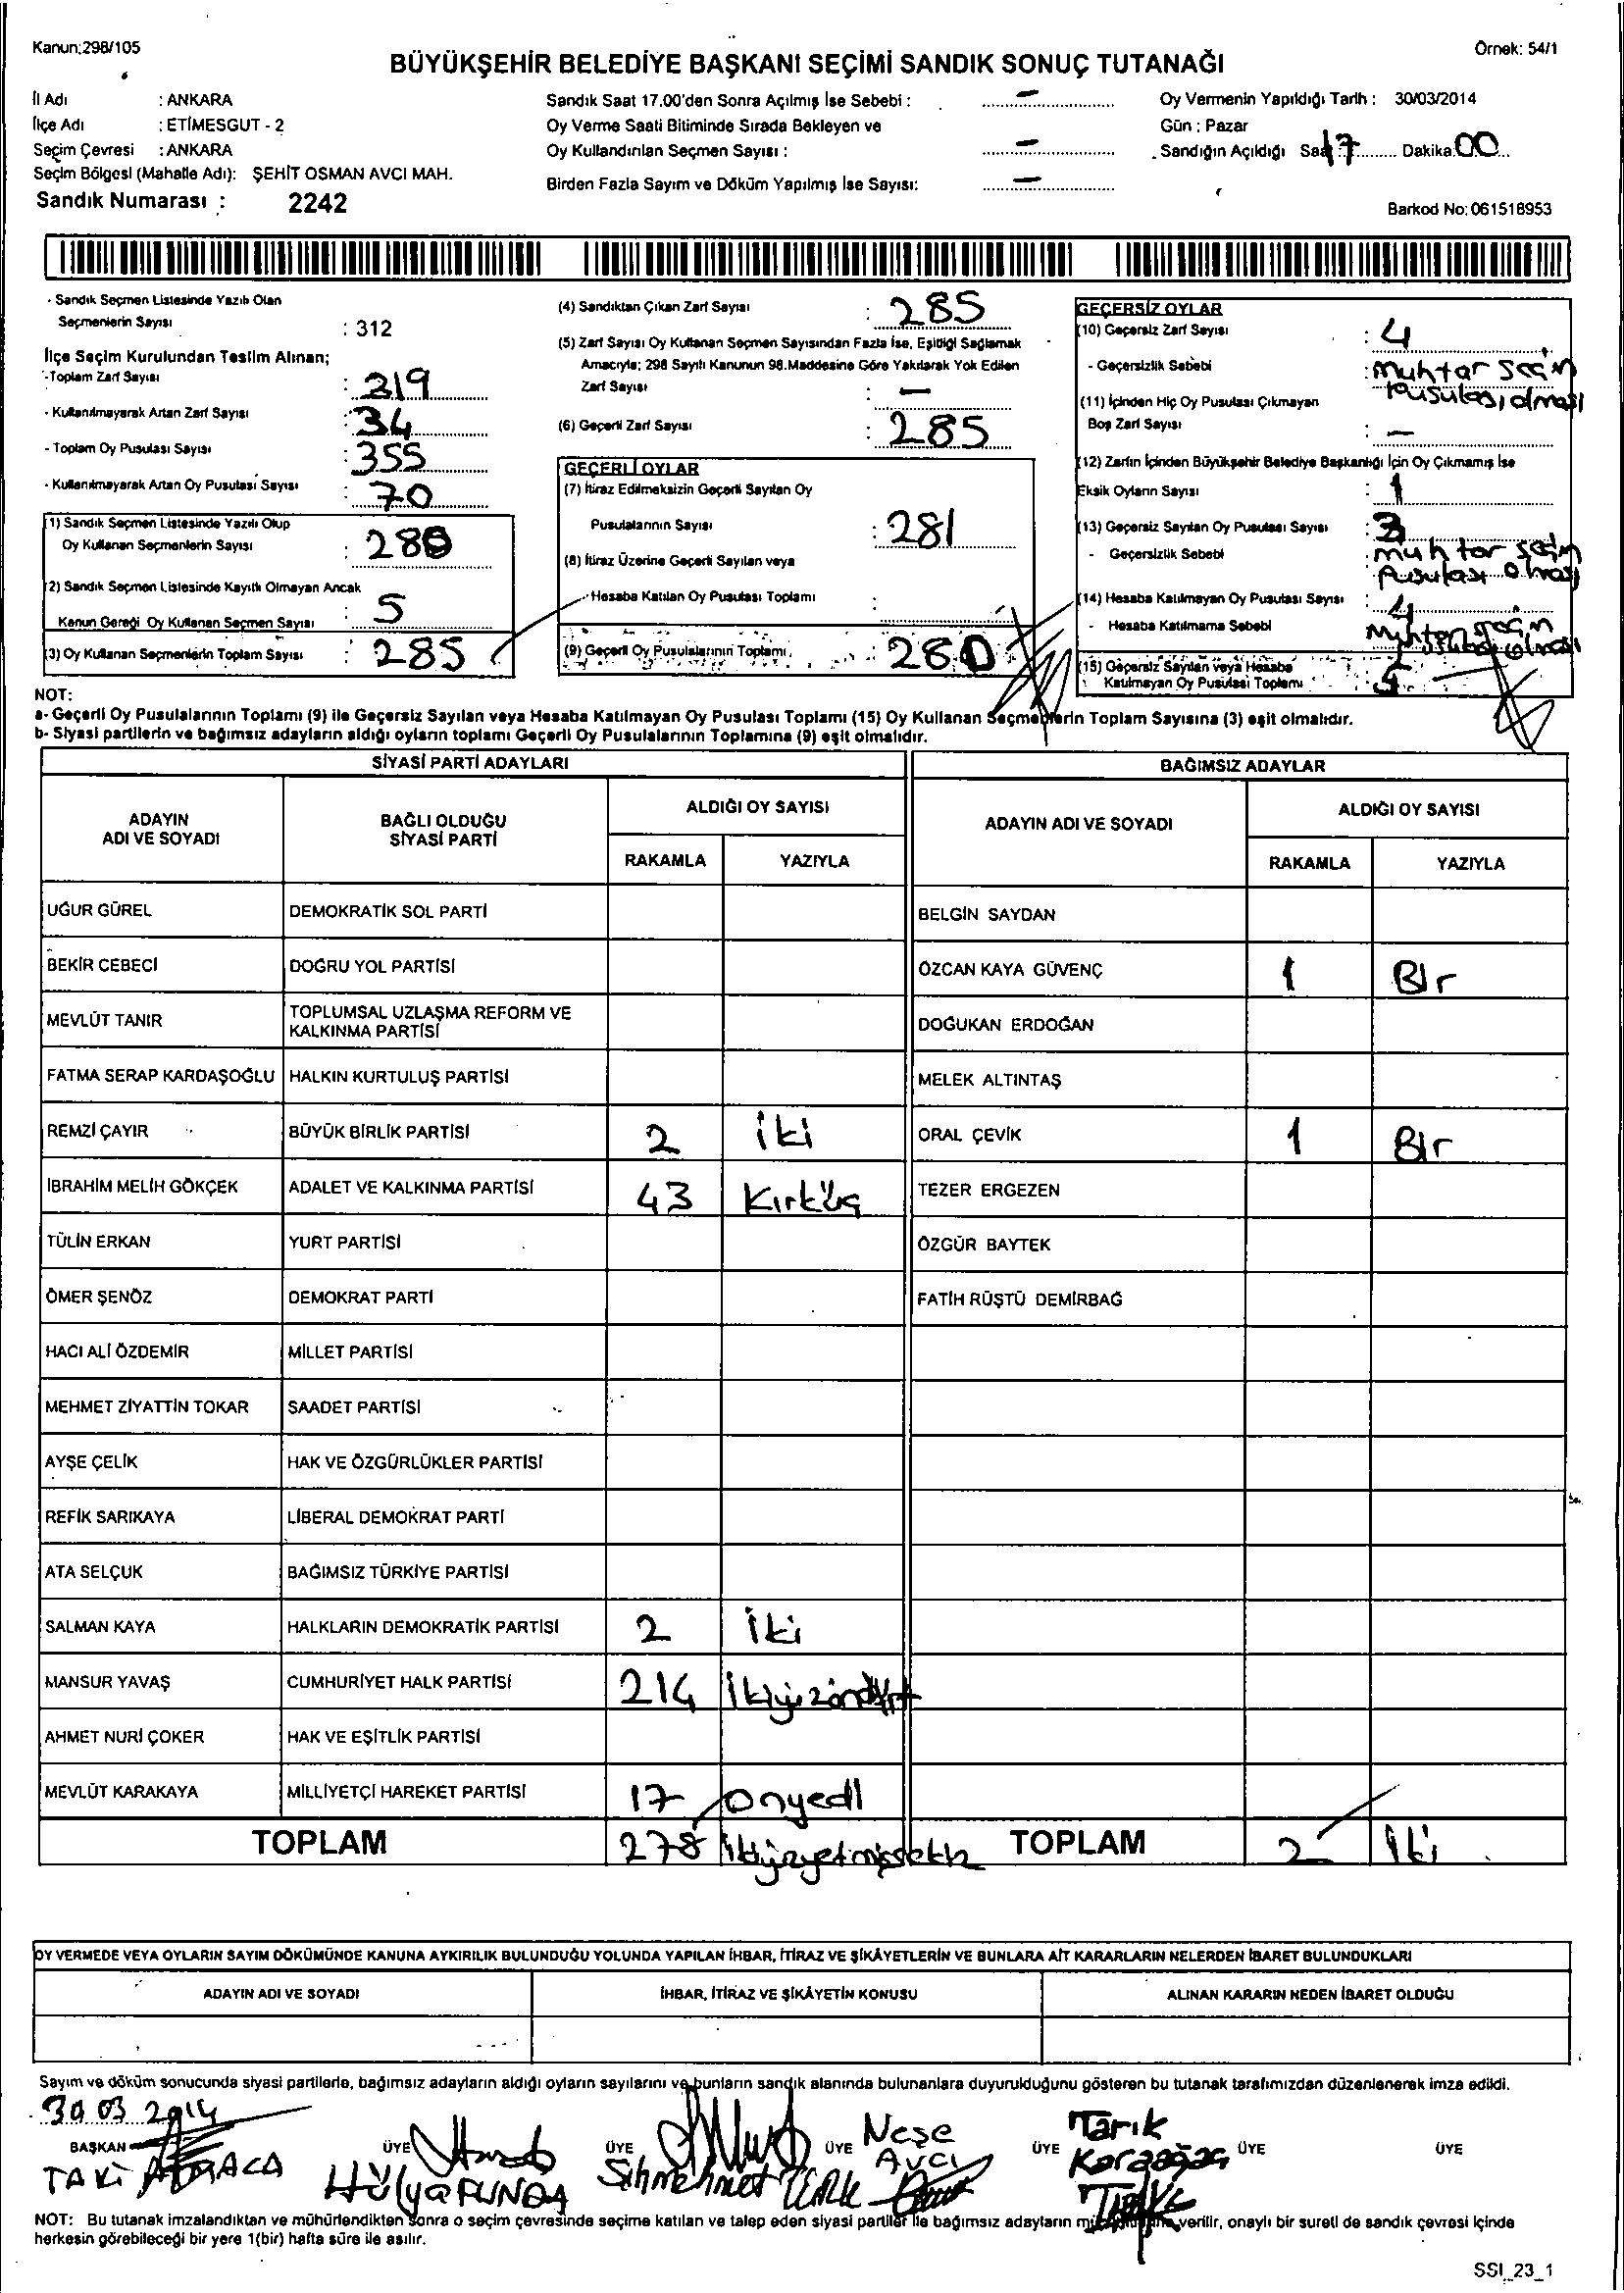 Kanun:298/105
Örnek: 54/1
BÜYÜKŞEHİR BELEDİYE BAŞKANI SEÇİMİ SANDIK SONUÇ TUTANAĞI
İl Adı : ANKARA
İlçe Adı : ETİMESGUT - 2
Seçim Çevresi : ANKARA
Seçim Bölgesi (Mahalle Adı): ŞEHİT OSMAN AVCI MAH.
Sandık Numarası : 2242
Sandık Saat 17.00'den Sonra Açılmış İse Sebebi : –
Oy Verme Saati Bitiminde Sırada Bekleyen ve
Oy Kullandırılan Seçmen Sayısı : –
Birden Fazla Sayım ve Döküm Yapılmış İse Sayısı: –
Oy Vermenin Yapıldığı Tarih : 30/03/2014
Gün : Pazar
Sandığın Açıldığı Saat : 17 Dakika: 00
Barkod No: 061518953
- Sandık Seçmen Listesinde Yazılı Olan
Seçmenlerin Sayısı : 312
İlçe Seçim Kurulundan Teslim Alınan;
-Toplam Zarf Sayısı : 319
- Kullanılmayarak Artan Zarf Sayısı : 34
- Toplam Oy Pusulası Sayısı : 355
- Kullanılmayarak Artan Oy Pusulası Sayısı : 70
(1) Sandık Seçmen Listesinde Yazılı Olup
Oy Kullanan Seçmenlerin Sayısı : 280
(2) Sandık Seçmen Listesinde Kayıtlı Olmayan Ancak
Kanun Gereği Oy Kullanan Seçmen Sayısı : 5
(3) Oy Kullanan Seçmenlerin Toplam Sayısı : 285
(4) Sandıktan Çıkan Zarf Sayısı : 285
(5) Zarf Sayısı Oy Kullanan Seçmen Sayısından Fazla İse, Eşitliği Sağlamak
Amacıyla; 298 Sayılı Kanunun 98.Maddesine Göre Yakılarak Yok Edilen
Zarf Sayısı : –
(6) Geçerli Zarf Sayısı : 285
GEÇERLİ OYLAR
(7) İtiraz Edilmeksizin Geçerli Sayılan Oy
Pusulalarının Sayısı : 281
(8) İtiraz Üzerine Geçerli Sayılan veya
Hesaba Katılan Oy Pusulası Toplamı :
(9) Geçerli Oy Pusulalarının Toplamı : 280
GEÇERSİZ OYLAR
(10) Geçersiz Zarf Sayısı : 4
- Geçersizlik Sebebi : muhtar seçim
Pusulası olması
(11) İçinden Hiç Oy Pusulası Çıkmayan
Boş Zarf Sayısı : –
(12) Zarfın İçinden Büyükşehir Belediye Başkanlığı İçin Oy Çıkmamış İse
Eksik Oyların Sayısı : 1
(13) Geçersiz Sayılan Oy Pusulası Sayısı : 3
- Geçersizlik Sebebi : muhtar seçim
Pusulası olması
(14) Hesaba Katılmayan Oy Pusulası Sayısı : 4
- Hesaba Katılmama Sebebi muhtar seçim
olması
(15) Geçersiz Sayılan veya Hesaba
Katılmayan Oy Pusulası Toplamı : 5
NOT:
a- Geçerli Oy Pusulalarının Toplamı (9) ile Geçersiz Sayılan veya Hesaba Katılmayan Oy Pusulası Toplamı (15) Oy Kullanan Seçmenlerin Toplam Sayısına (3) eşit olmalıdır.
b- Siyasi partilerin ve bağımsız adayların aldığı oyların toplamı Geçerli Oy Pusulalarının Toplamına (9) eşit olmalıdır.
SİYASİ PARTİ ADAYLARI BAĞIMSIZ ADAYLAR
ADAYIN ADI VE SOYADI
BAĞLI OLDUĞU SİYASİ PARTİ
ALDIĞI OY SAYISI
RAKAMLA YAZIYLA
ADAYIN ADI VE SOYADI
ALDIĞI OY SAYISI
RAKAMLA YAZIYLA
UĞUR GÜREL DEMOKRATİK SOL PARTİ BELGİN SAYDAN
BEKİR CEBECİ DOĞRU YOL PARTİSİ ÖZCAN KAYA GÜVENÇ 1 Bir
MEVLÜT TANIR TOPLUMSAL UZLAŞMA REFORM VE KALKINMA PARTİSİ DOĞUKAN ERDOĞAN
FATMA SERAP KARDAŞOĞLU HALKIN KURTULUŞ PARTİSİ MELEK ALTINTAŞ
REMZİ ÇAYIR BÜYÜK BİRLİK PARTİSİ 2 iki ORAL ÇEVİK 1 Bir
İBRAHİM MELİH GÖKÇEK ADALET VE KALKINMA PARTİSİ 43 Kırküç TEZER ERGEZEN
TÜLİN ERKAN YURT PARTİSİ ÖZGÜR BAYTEK
ÖMER ŞENÖZ DEMOKRAT PARTİ FATİH RÜŞTÜ DEMİRBAĞ
HACI ALİ ÖZDEMİR MİLLET PARTİSİ
MEHMET ZİYATTİN TOKAR SAADET PARTİSİ
AYŞE ÇELİK HAK VE ÖZGÜRLÜKLER PARTİSİ
REFİK SARIKAYA LİBERAL DEMOKRAT PARTİ
ATA SELÇUK BAĞIMSIZ TÜRKİYE PARTİSİ
SALMAN KAYA HALKLARIN DEMOKRATİK PARTİSİ 2 iki
MANSUR YAVAŞ CUMHURİYET HALK PARTİSİ 214 ikiyüzondört
AHMET NURİ ÇOKER HAK VE EŞİTLİK PARTİSİ
MEVLÜT KARAKAYA MİLLİYETÇİ HAREKET PARTİSİ 17 Onyedi
TOPLAM 278 ikiyüzyetmişsekiz TOPLAM 2 iki
OY VERMEDE VEYA OYLARIN SAYIM DÖKÜMÜNDE KANUNA AYKIRILIK BULUNDUĞU YOLUNDA YAPILAN İHBAR, İTİRAZ VE ŞİKÂYETLERİN VE BUNLARA AİT KARARLARIN NELERDEN İBARET BULUNDUKLARI
ADAYIN ADI VE SOYADI İHBAR, İTİRAZ VE ŞİKÂYETİN KONUSU ALINAN KARARIN NEDEN İBARET OLDUĞU
Sayım ve döküm sonucunda siyasi partilerle, bağımsız adayların aldığı oyların sayılarını ve bunların sandık alanında bulunanlara duyurulduğunu gösteren bu tutanak tarafımızdan düzenlenerek imza edildi.
30 03 2014
BAŞKAN ÜYE ÜYE ÜYE ÜYE ÜYE ÜYE
TAKİ
Hülya FUNDA
Neşe Avcı
Tarık Karaağaç
NOT: Bu tutanak imzalandıktan ve mühürlendikten sonra o seçim çevresinde seçime katılan ve talep eden siyasi partiler ile bağımsız adayların verilir, onaylı bir sureti de sandık çevresi içinde
herkesin görebileceği bir yere 1(bir) hafta süre ile asılır.
SSI_23_1